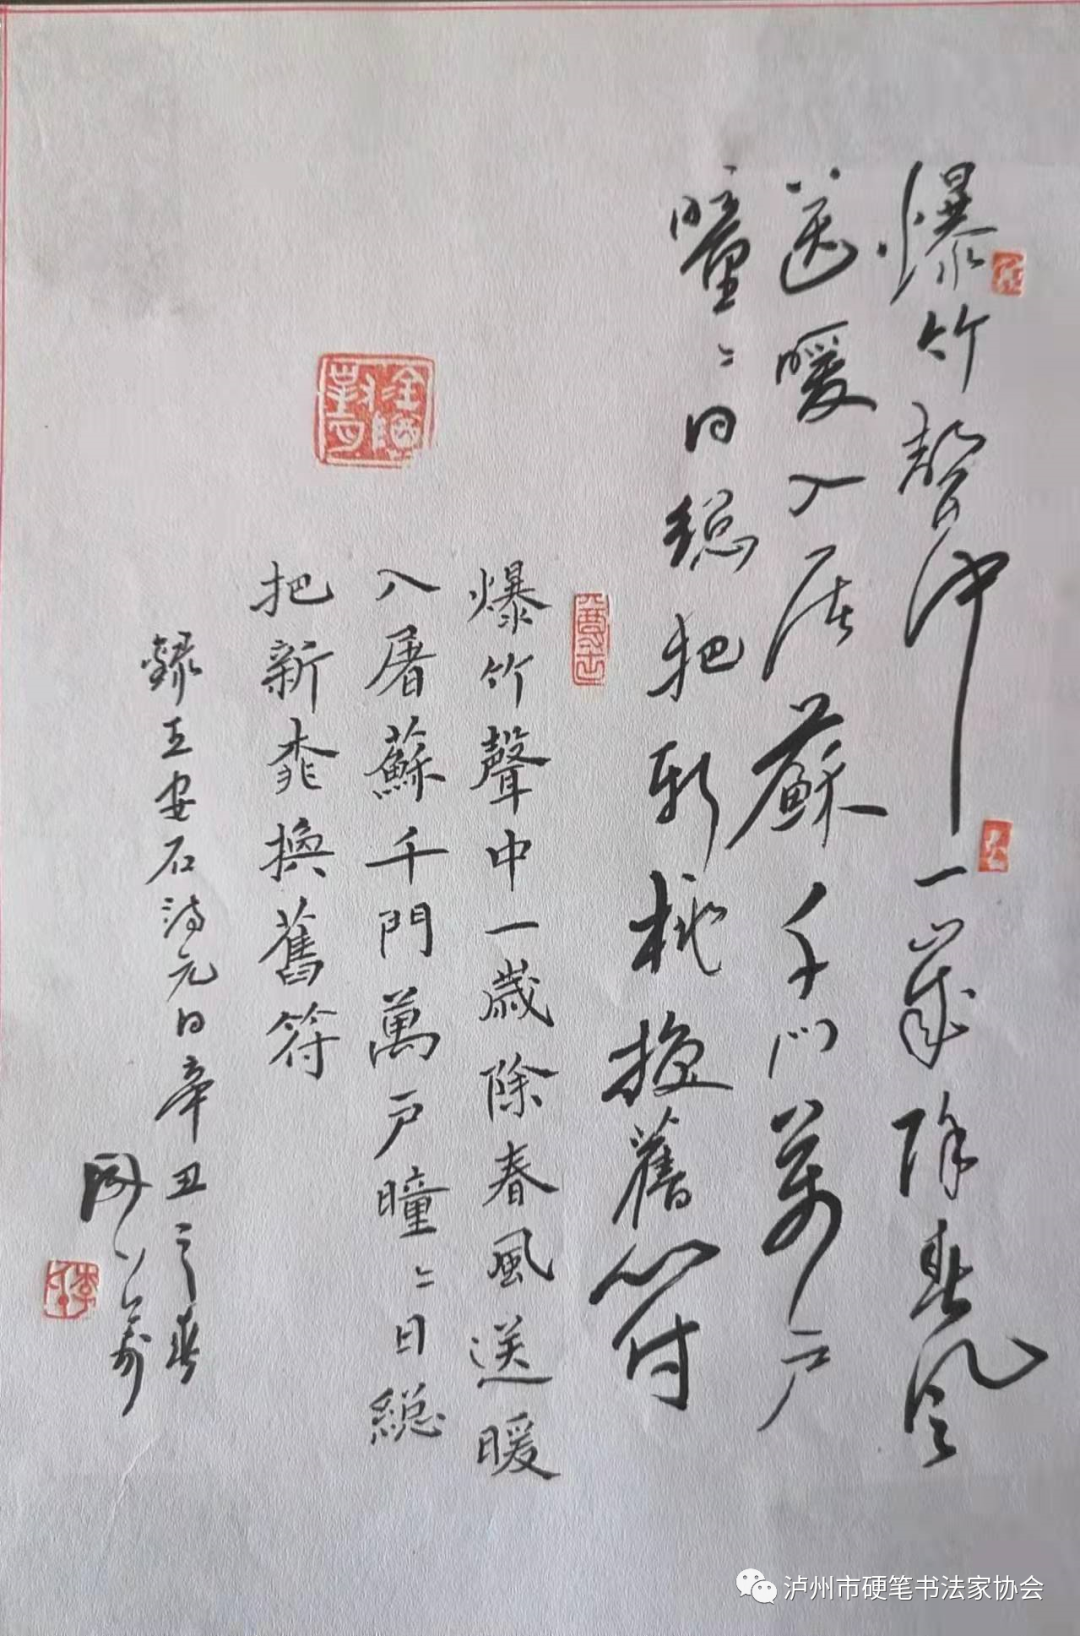 爆竹聲中一歲除春風
送暖入屠蘇千門萬户
曈〻日總把新桃換舊符
爆竹聲中一歲除春風送暖
入屠蘇千門萬户曈〻日總
把新桃換舊符
錄王安石詩元日辛丑之春
泸州市硬笔书法家协会